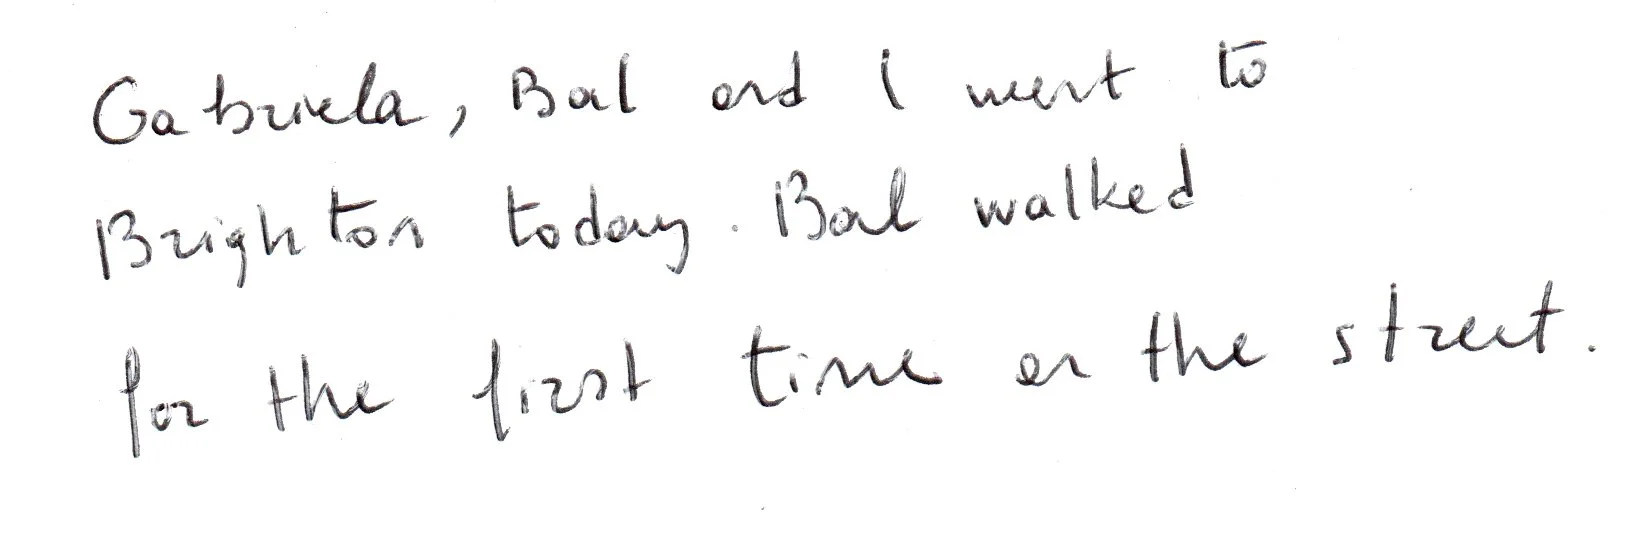 Gabriela, Bal and I went to
Brighton today. Bal walked
for the first time on the street.